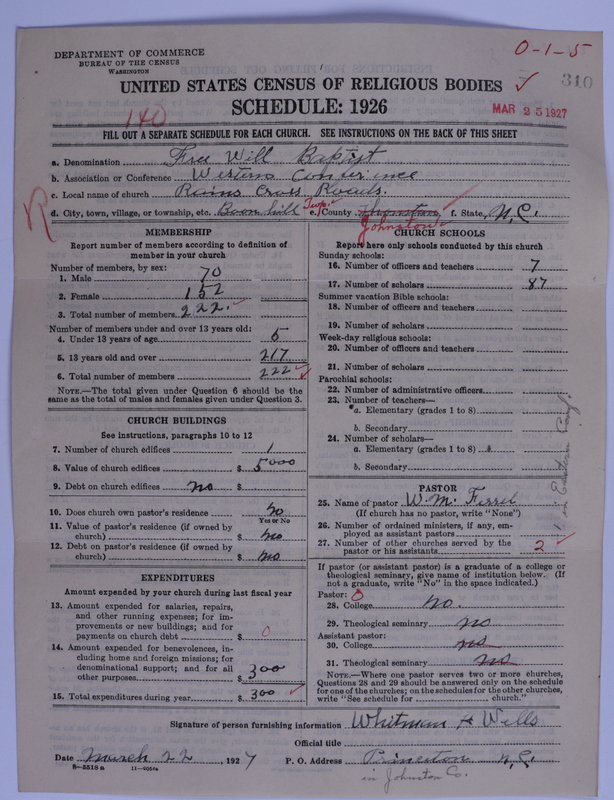 DEPARTMENT OF COMMERCE
BUREAU OF THE CENSUS
WASHINGTON
0-1-5
310
UNITED STATES CENSUS OF RELIGIOUS BODIES
SCHEDULE: 1926
MAR 25 1927
140
FILL OUT A SEPARATE SCHEDULE FOR EACH CHURCH. SEE INSTRUCTIONS ON THE BACK OF THIS SHEET
a. Denomination Free Will Baptist
b. Association or Conference Western Conference
c. Local name of church Rains Cross Roads.
d. City, town, village, or township, etc. Boon hill Twp. e. County Johnston f. State, N.C.
R
MEMBERSHIP
Report number of members according to definition of
member in your church
Number of members, by sex:
1. Male 70
2. Female 152
3. Total number of members 222
Number of members under and over 13 years old:
4. Under 13 years of age 5
5. 13 years old and over 217
6. Total number of members 222
NOTE.—The total given under Question 6 should be the
same as the total of males and females given under Question 3.
CHURCH BUILDINGS
See instructions, paragraphs 10 to 12
7. Number of church edifices 1
8. Value of church edifices $ 5000
9. Debt on church edifices no $
10. Does church own pastor's residence? no
Yes or No
11. Value of pastor's residence (if owned by
church) $ no
12. Debt on pastor's residence (if owned by
church) $ no
EXPENDITURES
Amount expended by your church during last fiscal year
13. Amount expended for salaries, repairs,
and other running expenses; for im-
provements or new buildings; and for
payments on church debt $ 0
14. Amount expended for benevolences, in-
cluding home and foreign missions; for
denominational support; and for all
other purposes $ 300
15. Total expenditures during year $ 300
CHURCH SCHOOLS
Report here only schools conducted by this church
Sunday schools:
16. Number of officers and teachers 7
17. Number of scholars 87
Summer vacation Bible schools:
18. Number of officers and teachers
19. Number of scholars
Week-day religious schools:
20. Number of officers and teachers
21. Number of scholars
Parochial schools:
22. Number of administrative officers
23. Number of teachers—
a. Elementary (grades 1 to 8)
b. Secondary
24. Number of scholars—
a. Elementary (grades 1 to 8)
b. Secondary
PASTOR
25. Name of pastor W. M. Ferrel
(If church has no pastor, write "None")
26. Number of ordained ministers, if any, em-
ployed as assistant pastors
27. Number of other churches served by the
pastor or his assistants 2
1 in Eastern Conf.
If pastor (or assistant pastor) is a graduate of a college or
theological seminary, give name of institution below. (If
not a graduate, write "No" in the space indicated.)
Pastor: 0
28. College no.
29. Theological seminary no
Assistant pastor:
30. College no
31. Theological seminary no
NOTE.—Where one pastor serves two or more churches,
Questions 28 and 29 should be answered only on the schedule
for one of the churches; on the schedules for the other churches,
write "See schedule for church."
Signature of person furnishing information Whitman H Wells
Official title
Date March 22, 1927 P. O. Address Princeton N.C.
8-5518a 11-9056a
in Johnston Co.